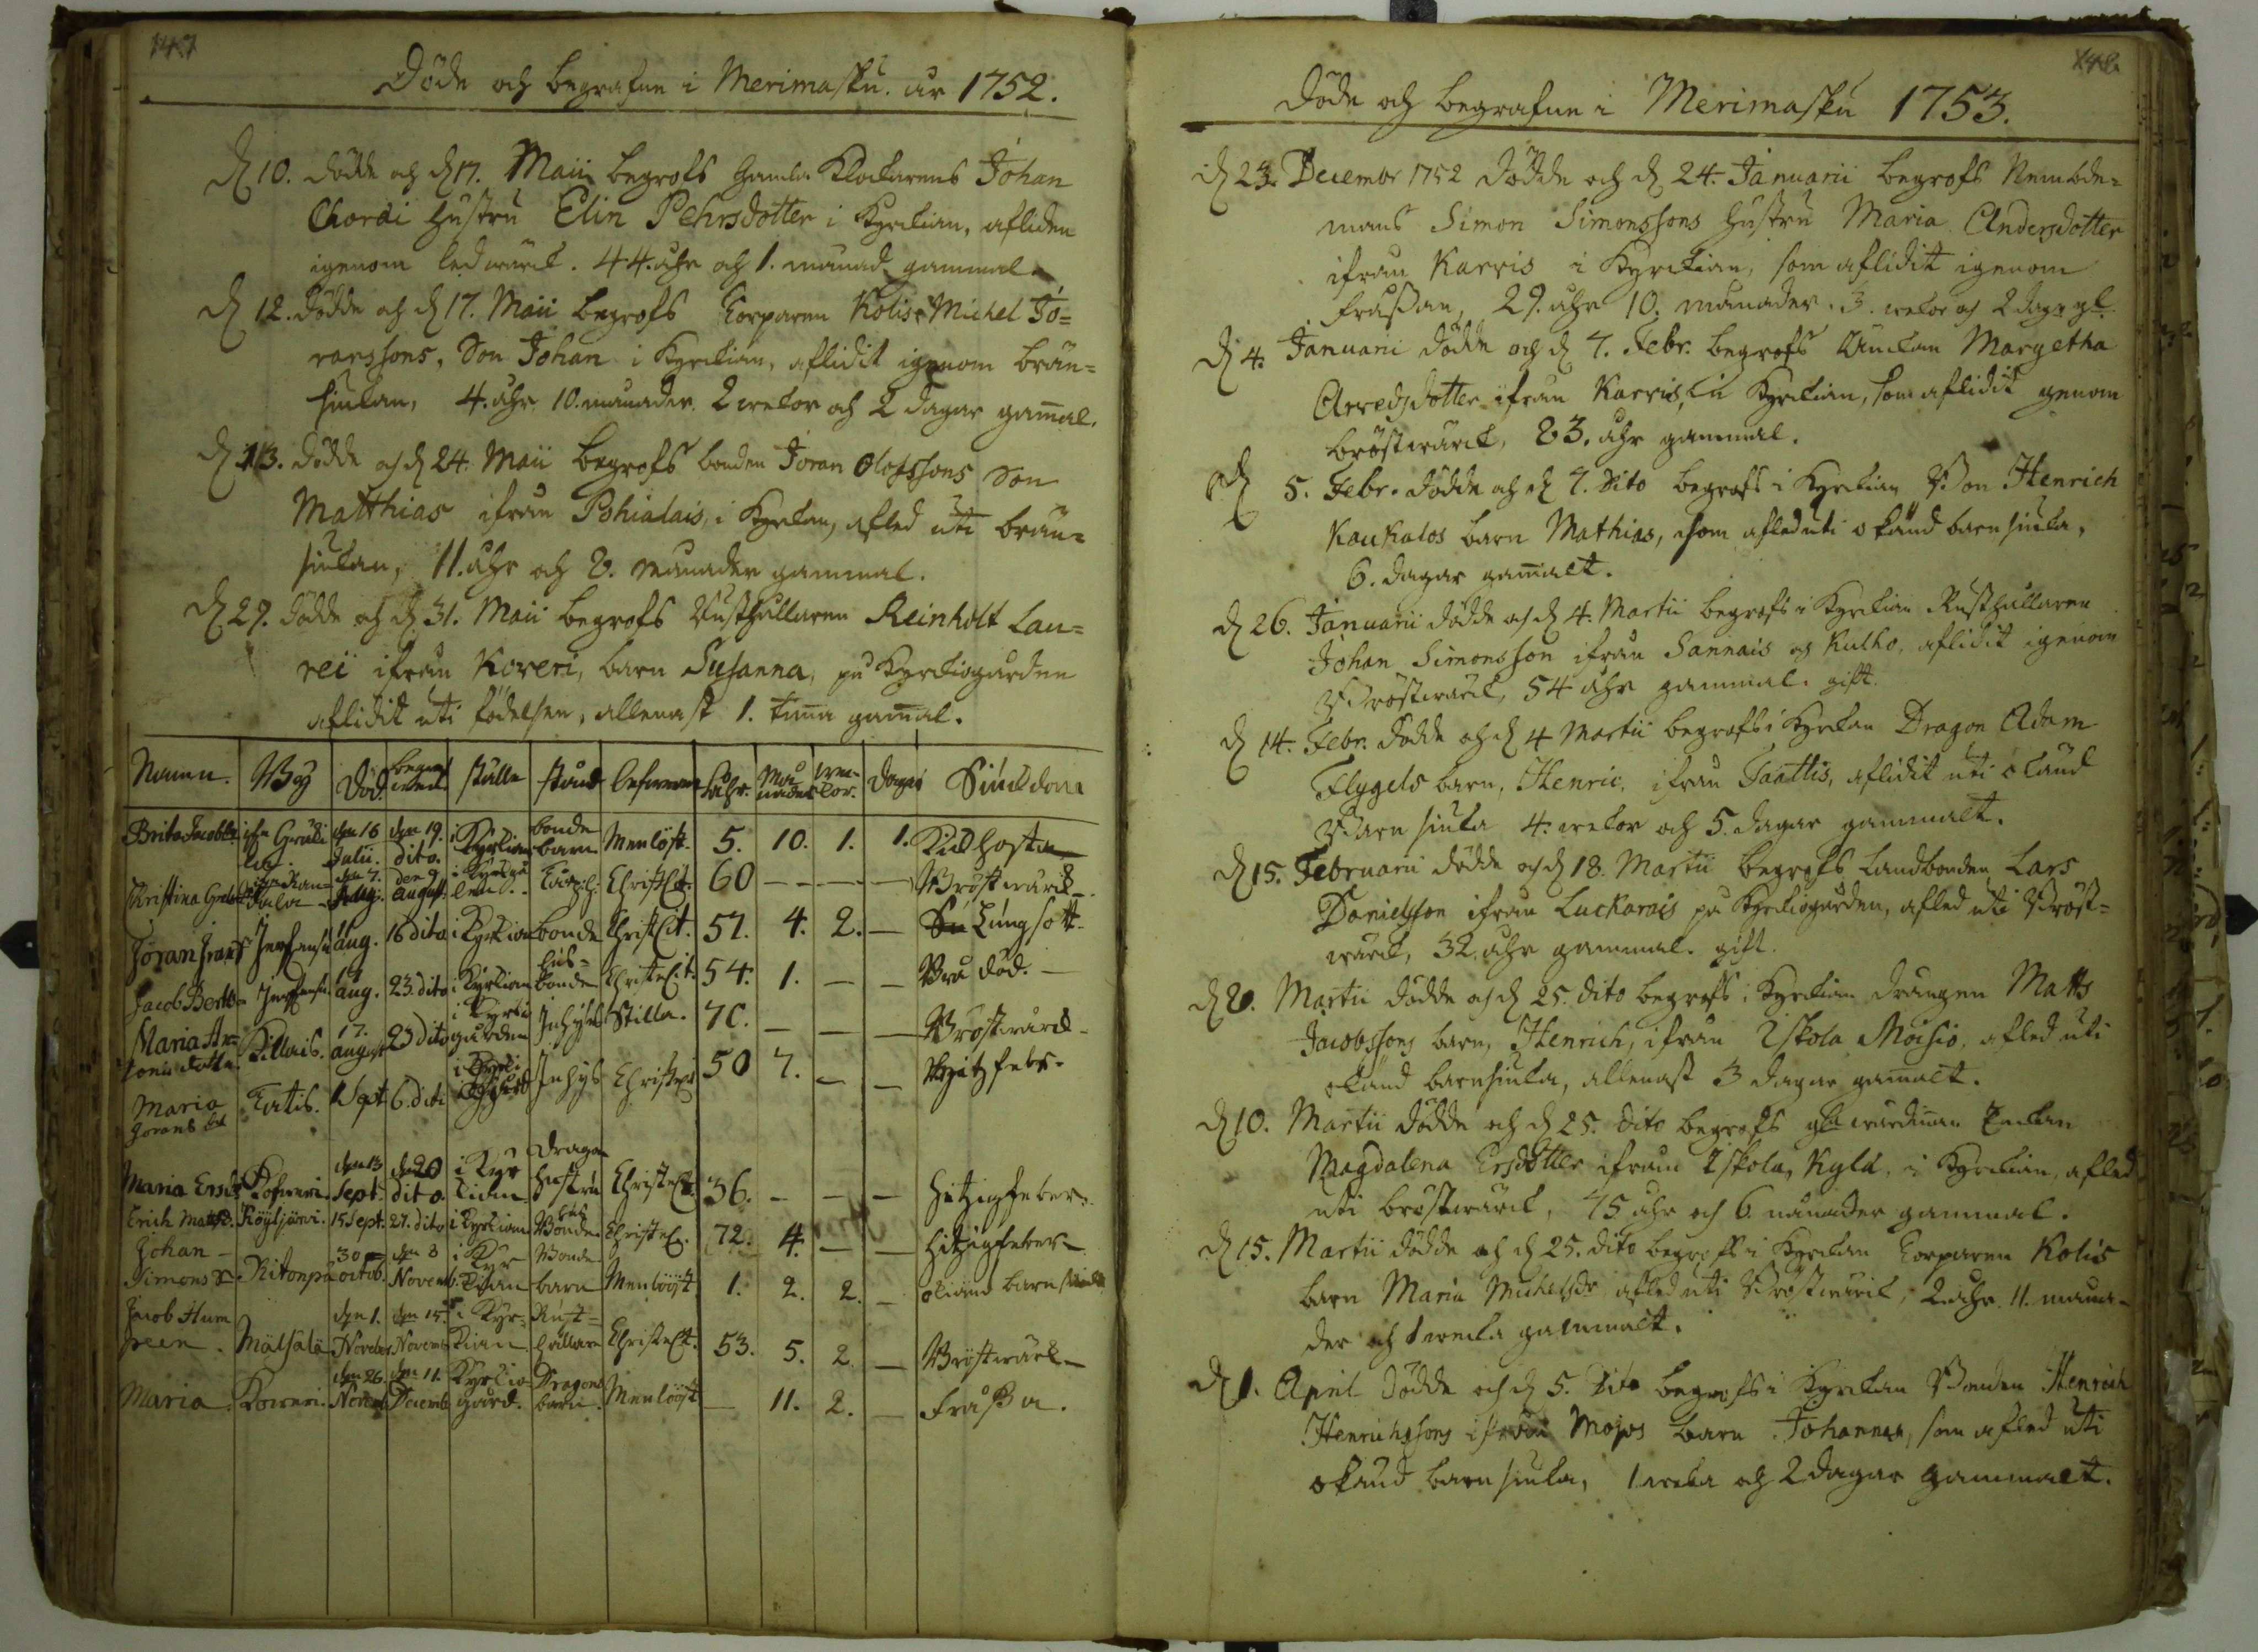 147
Döde och begrafne i Merimasku åhr 1752.
D 10. dödde och d 17. Maii begrofs Gamla Klockarens Johan
Chorai Hustru Elin Pehrsdotter i Kyrckian, afliden
igenom ledwärck. 44. åhr och 1. månad gammal.
D 12. dödde och d 17. Maii begrofs Torparen Kolis Michel Jö=
ranssons, Son Johan i Kyrckian, aflidit igenom brän=
siukan, 4. åhr 10. månader 2 wekor och 2 dagar gammal.
D 13. dödde och d 24. Maii begrofs bonden Jöran Olofssons Son
Matthias ifrån Pohialais, i Kyrckan, afled uti brän=
siukan, 11. åhr och 8. månader gammal.
D 29. dödde och d 31. Maii begrofs Rusthållaren Reinholt Lau=
rei ifrån Koveri, barn Susanna, på Kyrckiogården
aflidit uti födelsen, allenast 1. tima gamal.
Namn. By Död. begraf wed ställe stånd lefwerne Åhr. Må nader wec- kor. dagar Siuckdom
Brita Jacobsdr den 16 Julii. den 19. dito. i Kyrckian bonde barn Menlöst. 5. 10. 1. 1. Kikhosta
Christina den 7. den 9 august. Christel. 60 — — — Bröstwärck
Jöran aug. 16 dito i Kyrkian bonde Christel. 57. 4. 2. — Lungsott
Jacob aug. 23 dito i Kyrkian bonde Christel. 54. 1. — — Brå död.
Maria An= Killais. 17. august 23 dito i Kyrkio gården Inhyses Stilla. 70. — — — Bröstwärck
Maria Görans dr Tatis. 1 Sept 6 dito Inhys Christel. 50 7. — — Hetz feber.
Maria Ersdr den 13 Sept. den 20 dito i Kyr kian dragon hustru Christel. 36. — — — Hitzigfeber
Erich Matts. Köyljärvi. 15 Sept. 27. dito i Kyrkian Bonde Christel. 72. 4. — — Hitzigfeber
Johan Simons Ritonpä 30 octob. den 8 Novemb. i Kyr kian Bonde barn Menlööst 1. 2. 2. — okiänd barnsiuka
Jacob Hum Mälsälä den 1. Novebr. den 15. Novemb. i Kyr= kian Rust= hållare Christel. 53. 5. 2. — Bröstwärck
Maria. Koiveri. den 26. Novemb. den 11. Decemb. Kyrkio gård. Dragons barn. Menlööst — 11. 2. — Frassa.
148
Döde och begrafne i Merimasku 1753.
D 23. Decembr 1752 dödde och d 24. Januarii begrofs Nembde=
mans Simon Simonssons Hustru Maria Andersdotter
ifrån Karvis i Kyrckian, som aflidit igenom
frassan, 29. åhr 10. månader. 3. wekor och 2 dagr gl.
D 4. Januarii dödde och d 7. Febr. begrofs Änckan Margetha
Arredsdotter ifrån Karvis, i Kyrckian, som aflidit genom
bröstwärck, 83. åhr gammal.
D 5. Febr. dödde och d 7. Dito begrofs i Kyrckian Bon Henrich
Kaukalos barn Mathias, som afled uti okänd barnsiuka,
6. dagar gamalt.
D 26. Januarii dödde och d 4. Martii begrofs i Kyrckian Rusthållaren
Johan Simonsson ifrån Sannais och Kulho, aflidit igenom
Bröstwärck, 54 åhr gammal. gift.
D 14. Febr. dödde och d 4 Martii begrofs i Kyrckan Dragon Adam
Flygels barn, Henric, ifrån Taattis, aflidit uti okänd
Barnsiuka 4. wekor och 5. dagar gammalt.
D 15. Februarii dödde och d 18. Martii begrofs Landbonden Lars
Danielsson ifrån Luckarais på Kyrckiogården, afled uti Bröst=
wärck, 32. åhr gammal. gift.
D 8. Martii dödde och d 25. dito begrofs i Kyrckian drängen Matts
Jacobssons barn, Henrich, ifrån Iskola Moisio. afled uti
okänd barnsiuka, allenast 3 dagar gamalt.
D 10. Martii dödde och d 25. Dito begrofs Enckan
Magdalena Ersdotter ifrån Iskola, Kylä, i Kyrckian, afled
uti bröstwärck, 75 åhr och 6. månader gammal.
D 15. Martii dödde och d 25. dito begrofs i Kyrckan Torparen Kolis
barn Maria Michelsdr afled uti Bröstwärck, 2. åhr. 11. måna-
der och 1 wecka gammalt.
D 1. April dödde och d 5. Dito begrofs i Kyrckan Bonden Henrich
Henrichssons ifrån Mojos barn Johannes, som afled uti
okänd barnsiuka, 1 wecka och 2 dagar gammalt.